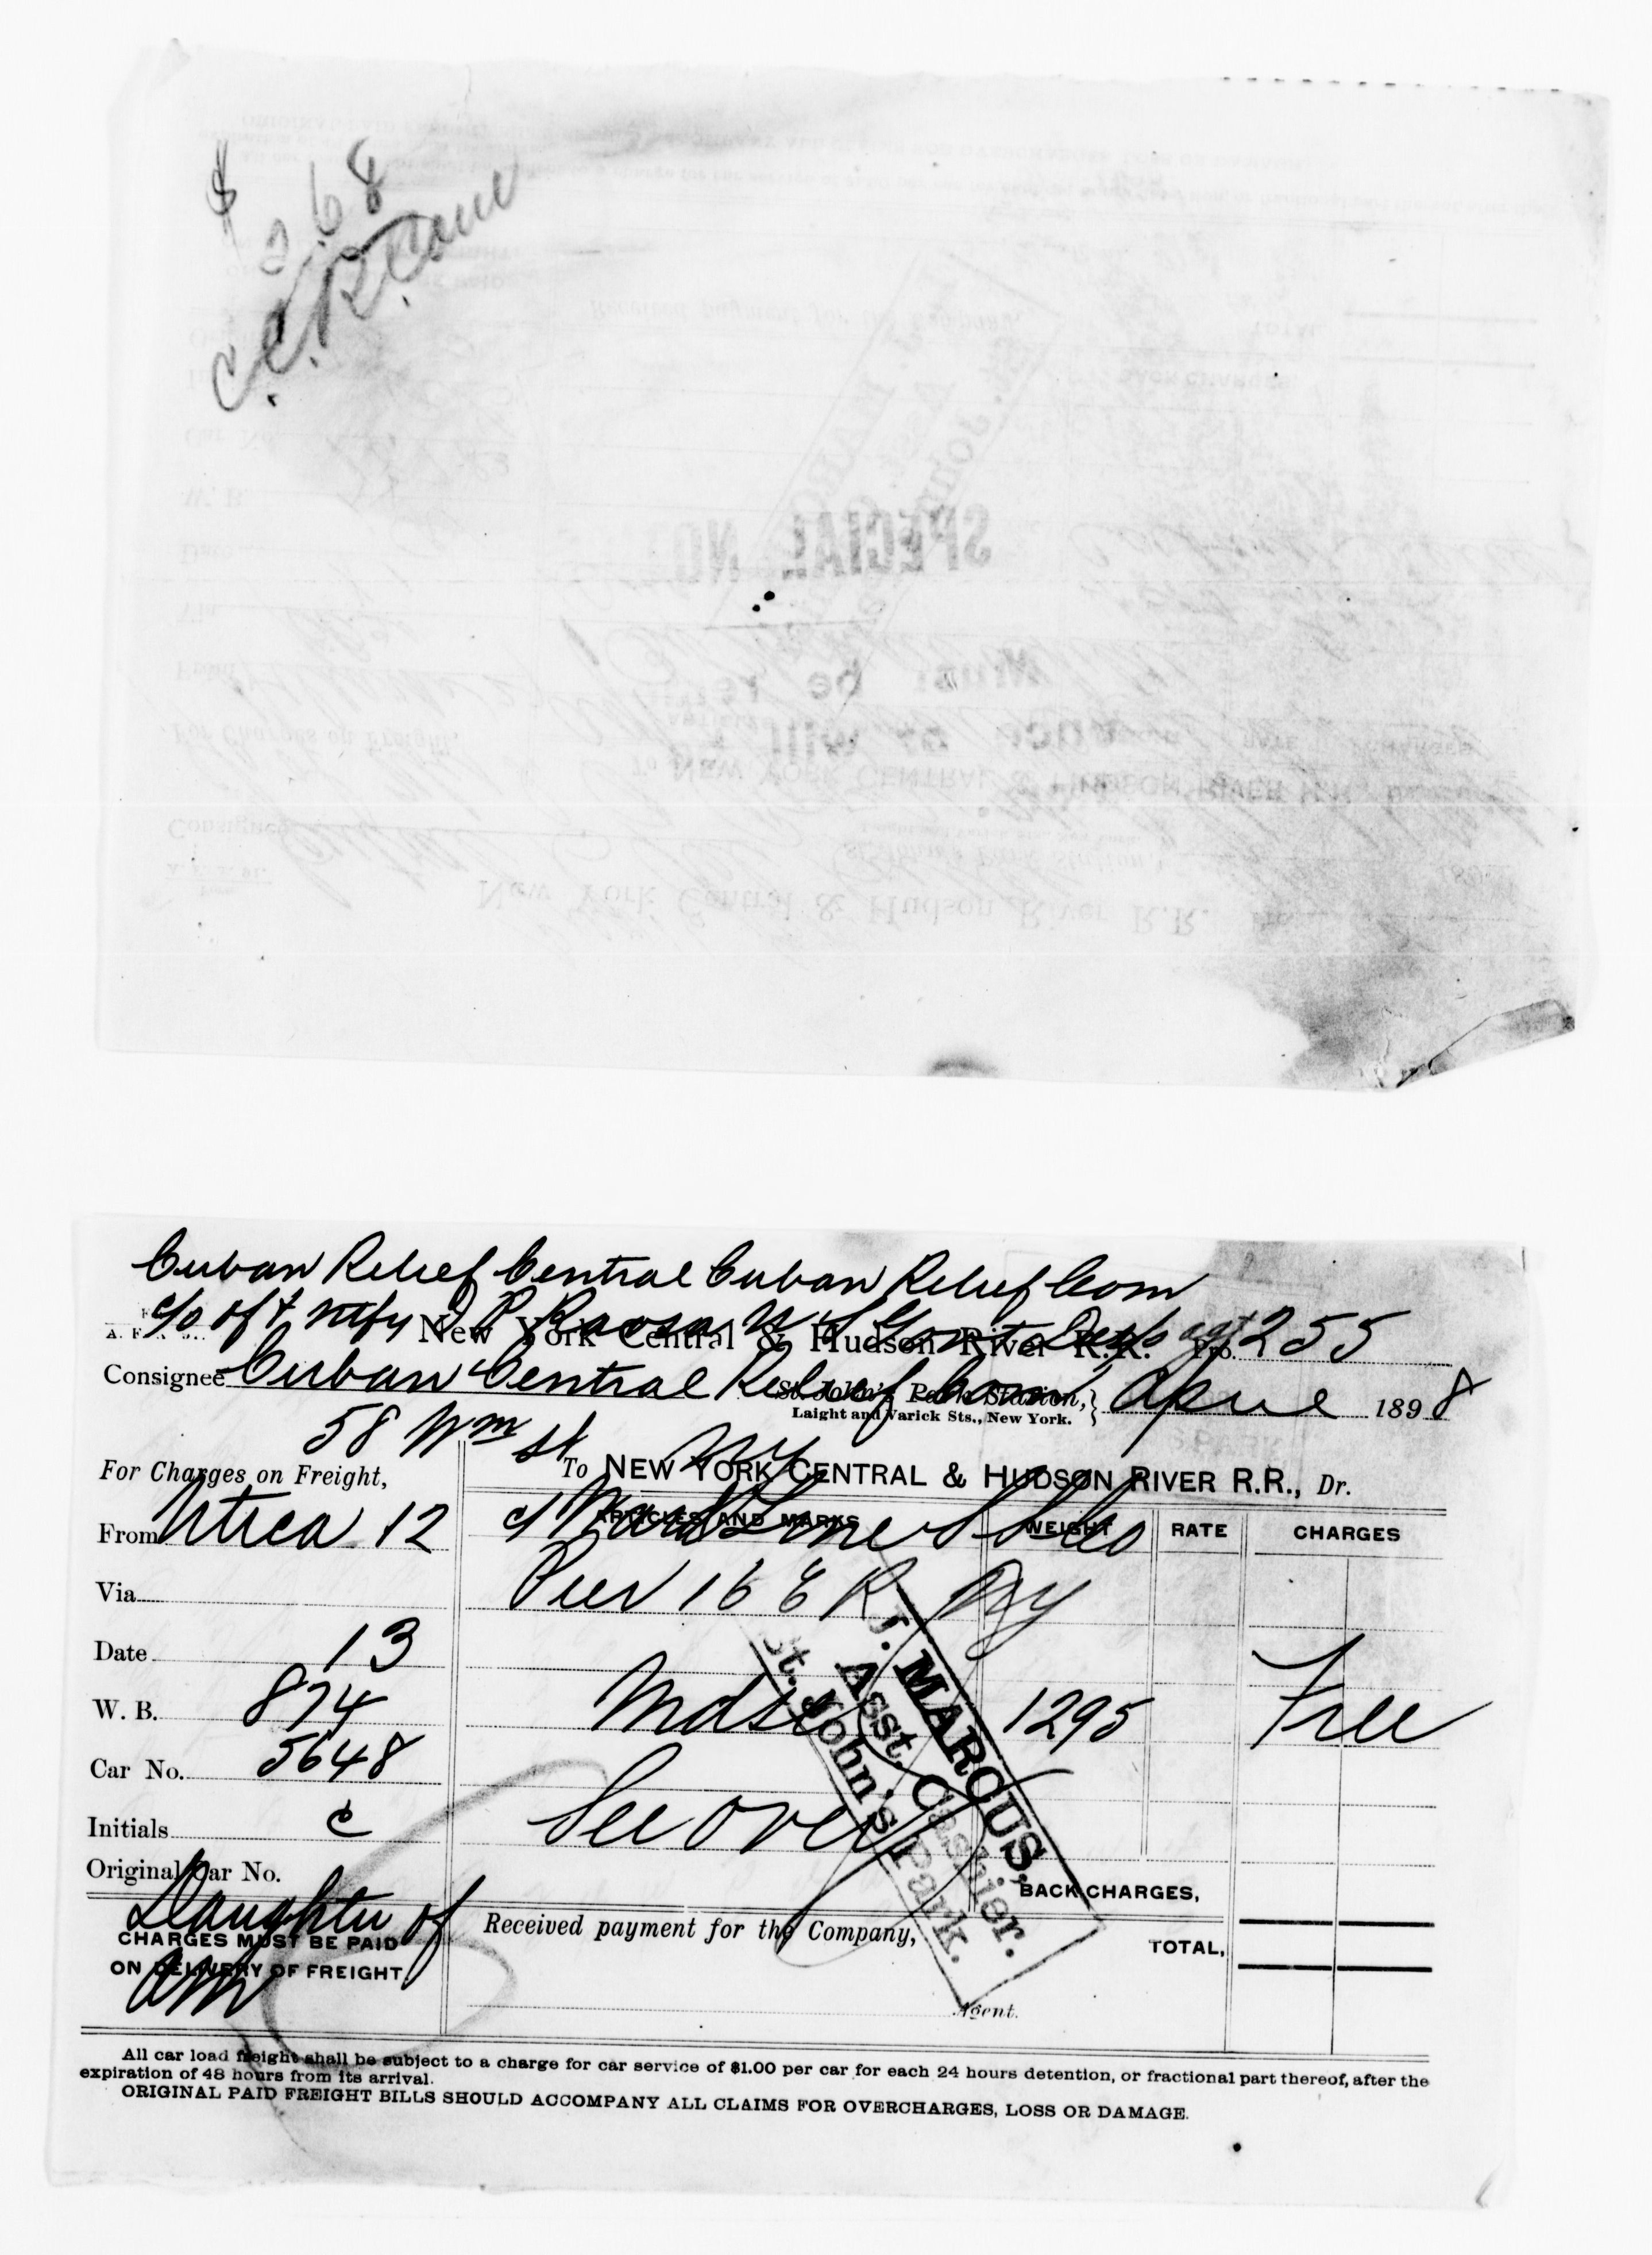 $ 268
C.C.R. Com
SPECIAL NO
Must be re
Cuban Relief Central Cuban Relief Com
c/o of & ntfy
New York Central & Hudson River R.R. Pro. 255
Consignee Cuban Central Relief Com
St. John's Park Station,
Laight and Varick Sts., New York.
April 1898
58 Wm St NY
For Charges on Freight,
To NEW YORK CENTRAL & HUDSON RIVER R.R., Dr.
From Utica 12
ARTICLES AND MARKS WEIGHT RATE CHARGES
c/ Ward Line S S Co
Via
Pier 16 E R NY
Date 13
W. B. 874
Mdse 1295 Free
Car No. 5648
Initials C
See over
Original Car No.
BACK CHARGES,
Daughter of
CHARGES MUST BE PAID
ON DELIVERY OF FREIGHT
Am
Received payment for the Company,
TOTAL,
Agent.
J. MARCUS,
Asst. Cashier.
St. John's Park.
All car load freight shall be subject to a charge for car service of $1.00 per car for each 24 hours detention, or fractional part thereof, after the
expiration of 48 hours from its arrival.
ORIGINAL PAID FREIGHT BILLS SHOULD ACCOMPANY ALL CLAIMS FOR OVERCHARGES, LOSS OR DAMAGE.